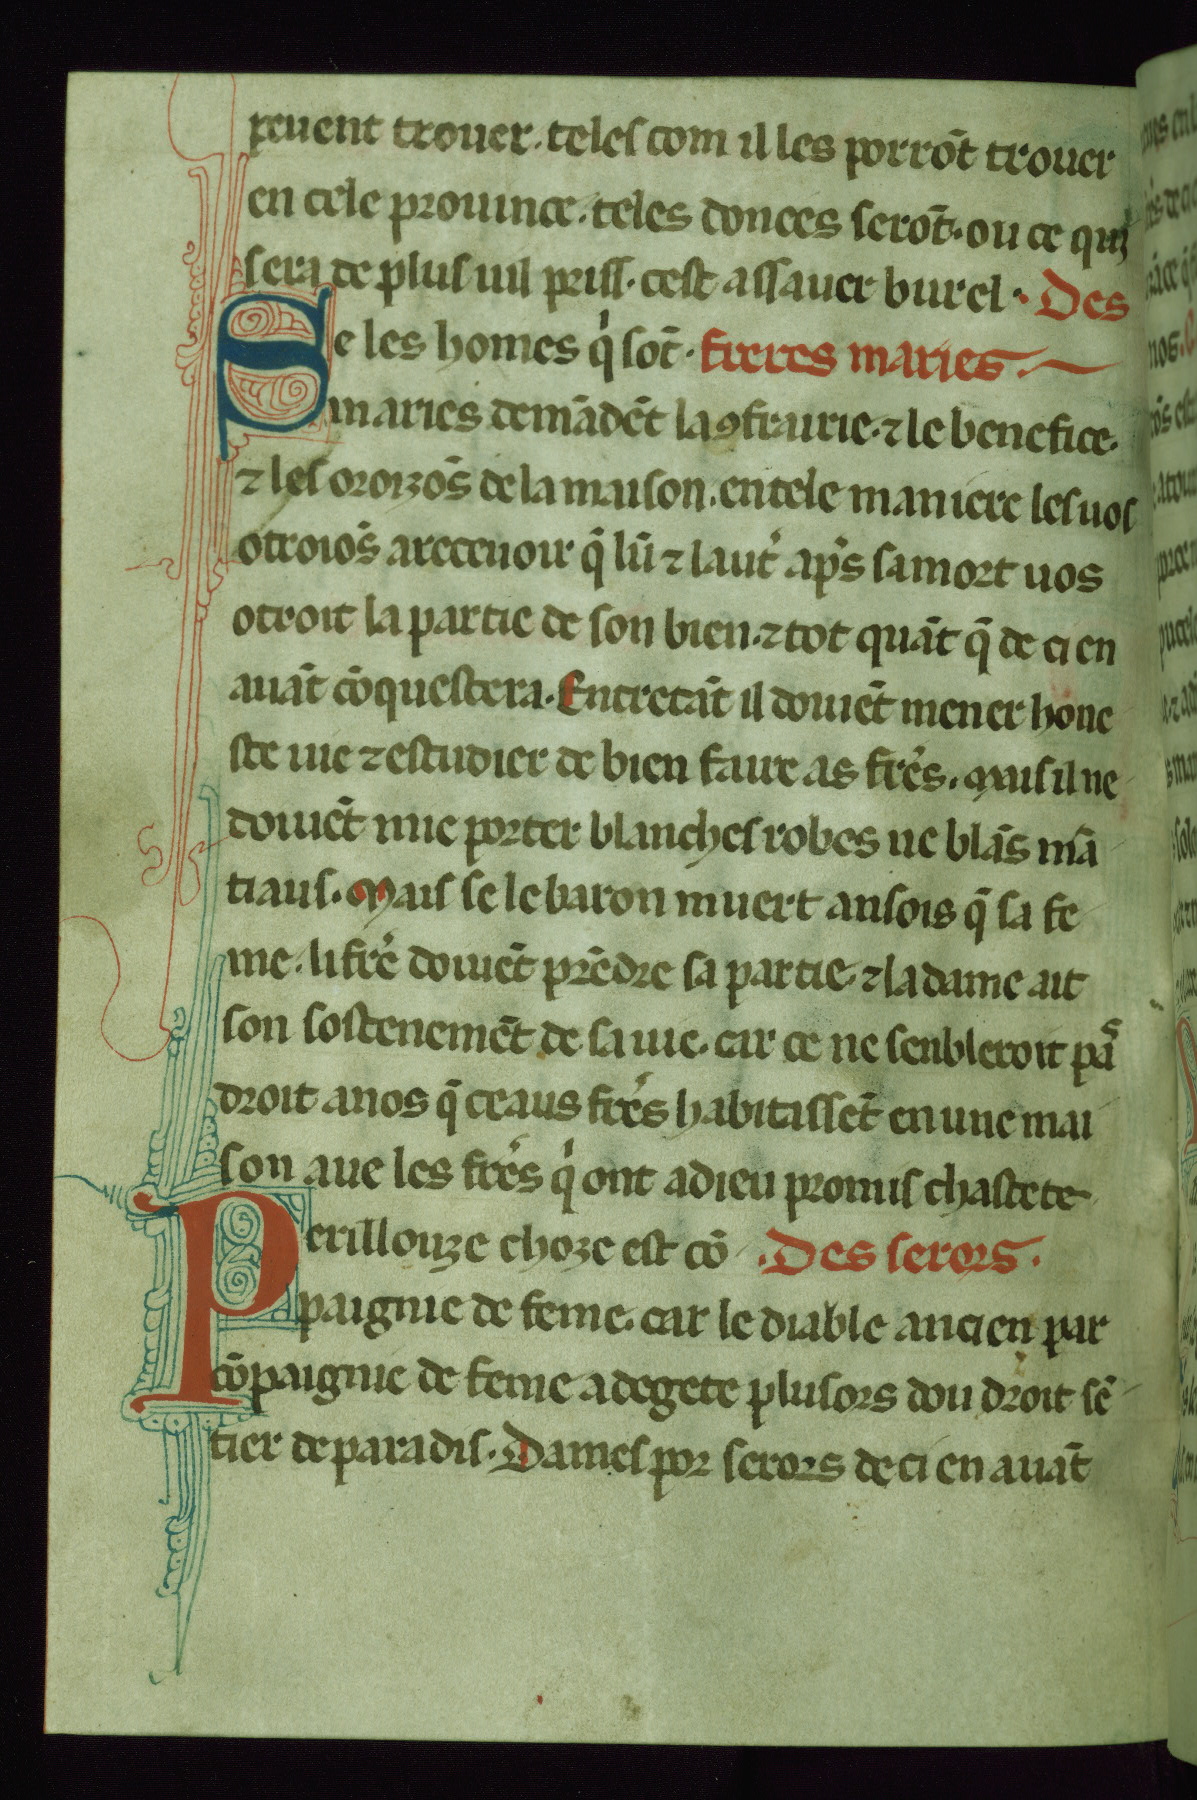 peuent trouer. teles com il les porrōt trouer
en cele prouince. teles donees serōt. ou ce qui
sera de plus uil priss. cest assauer burel. Des
Se les homes q̍ sōt. freres maries.
maries demādēt la ꝯfrairie. ⁊ le benefice.
⁊ les oroizōs de la maison. en tele maniere les uos
otroiōs a receuoir q̄ lū ⁊ laut̍ ap̍s sa mort uos
otroit la partie de son bien. ⁊ tot quāt q̄ de ci en
auāt cōquestera. Entretāt il doiuēt mener hone
ste uie ⁊ estudier de bien faire as fr̍es. mais il ne
doiuēt mie porter blanches robes ne blās mā
tiaus. Mais se le baron muert ansois q̄ sa fe
me. li fr̍e doiuēt prēdre sa partie. ⁊ la dame ait
son sostenemēt de sa uie. car ce ne senbleroit pas
droit a nos q̄ ceaus fr̍es habitassēt en une mai
son aue les fr̍es q̍ ont a dieu promis chastete
Perillouze choze est cō .Des serors.
paignie de feme. car le diable ancien par
cōpaignie de feme a degete plusors dou droit sē
tier de paradis. Dames por serors de ci en auāt